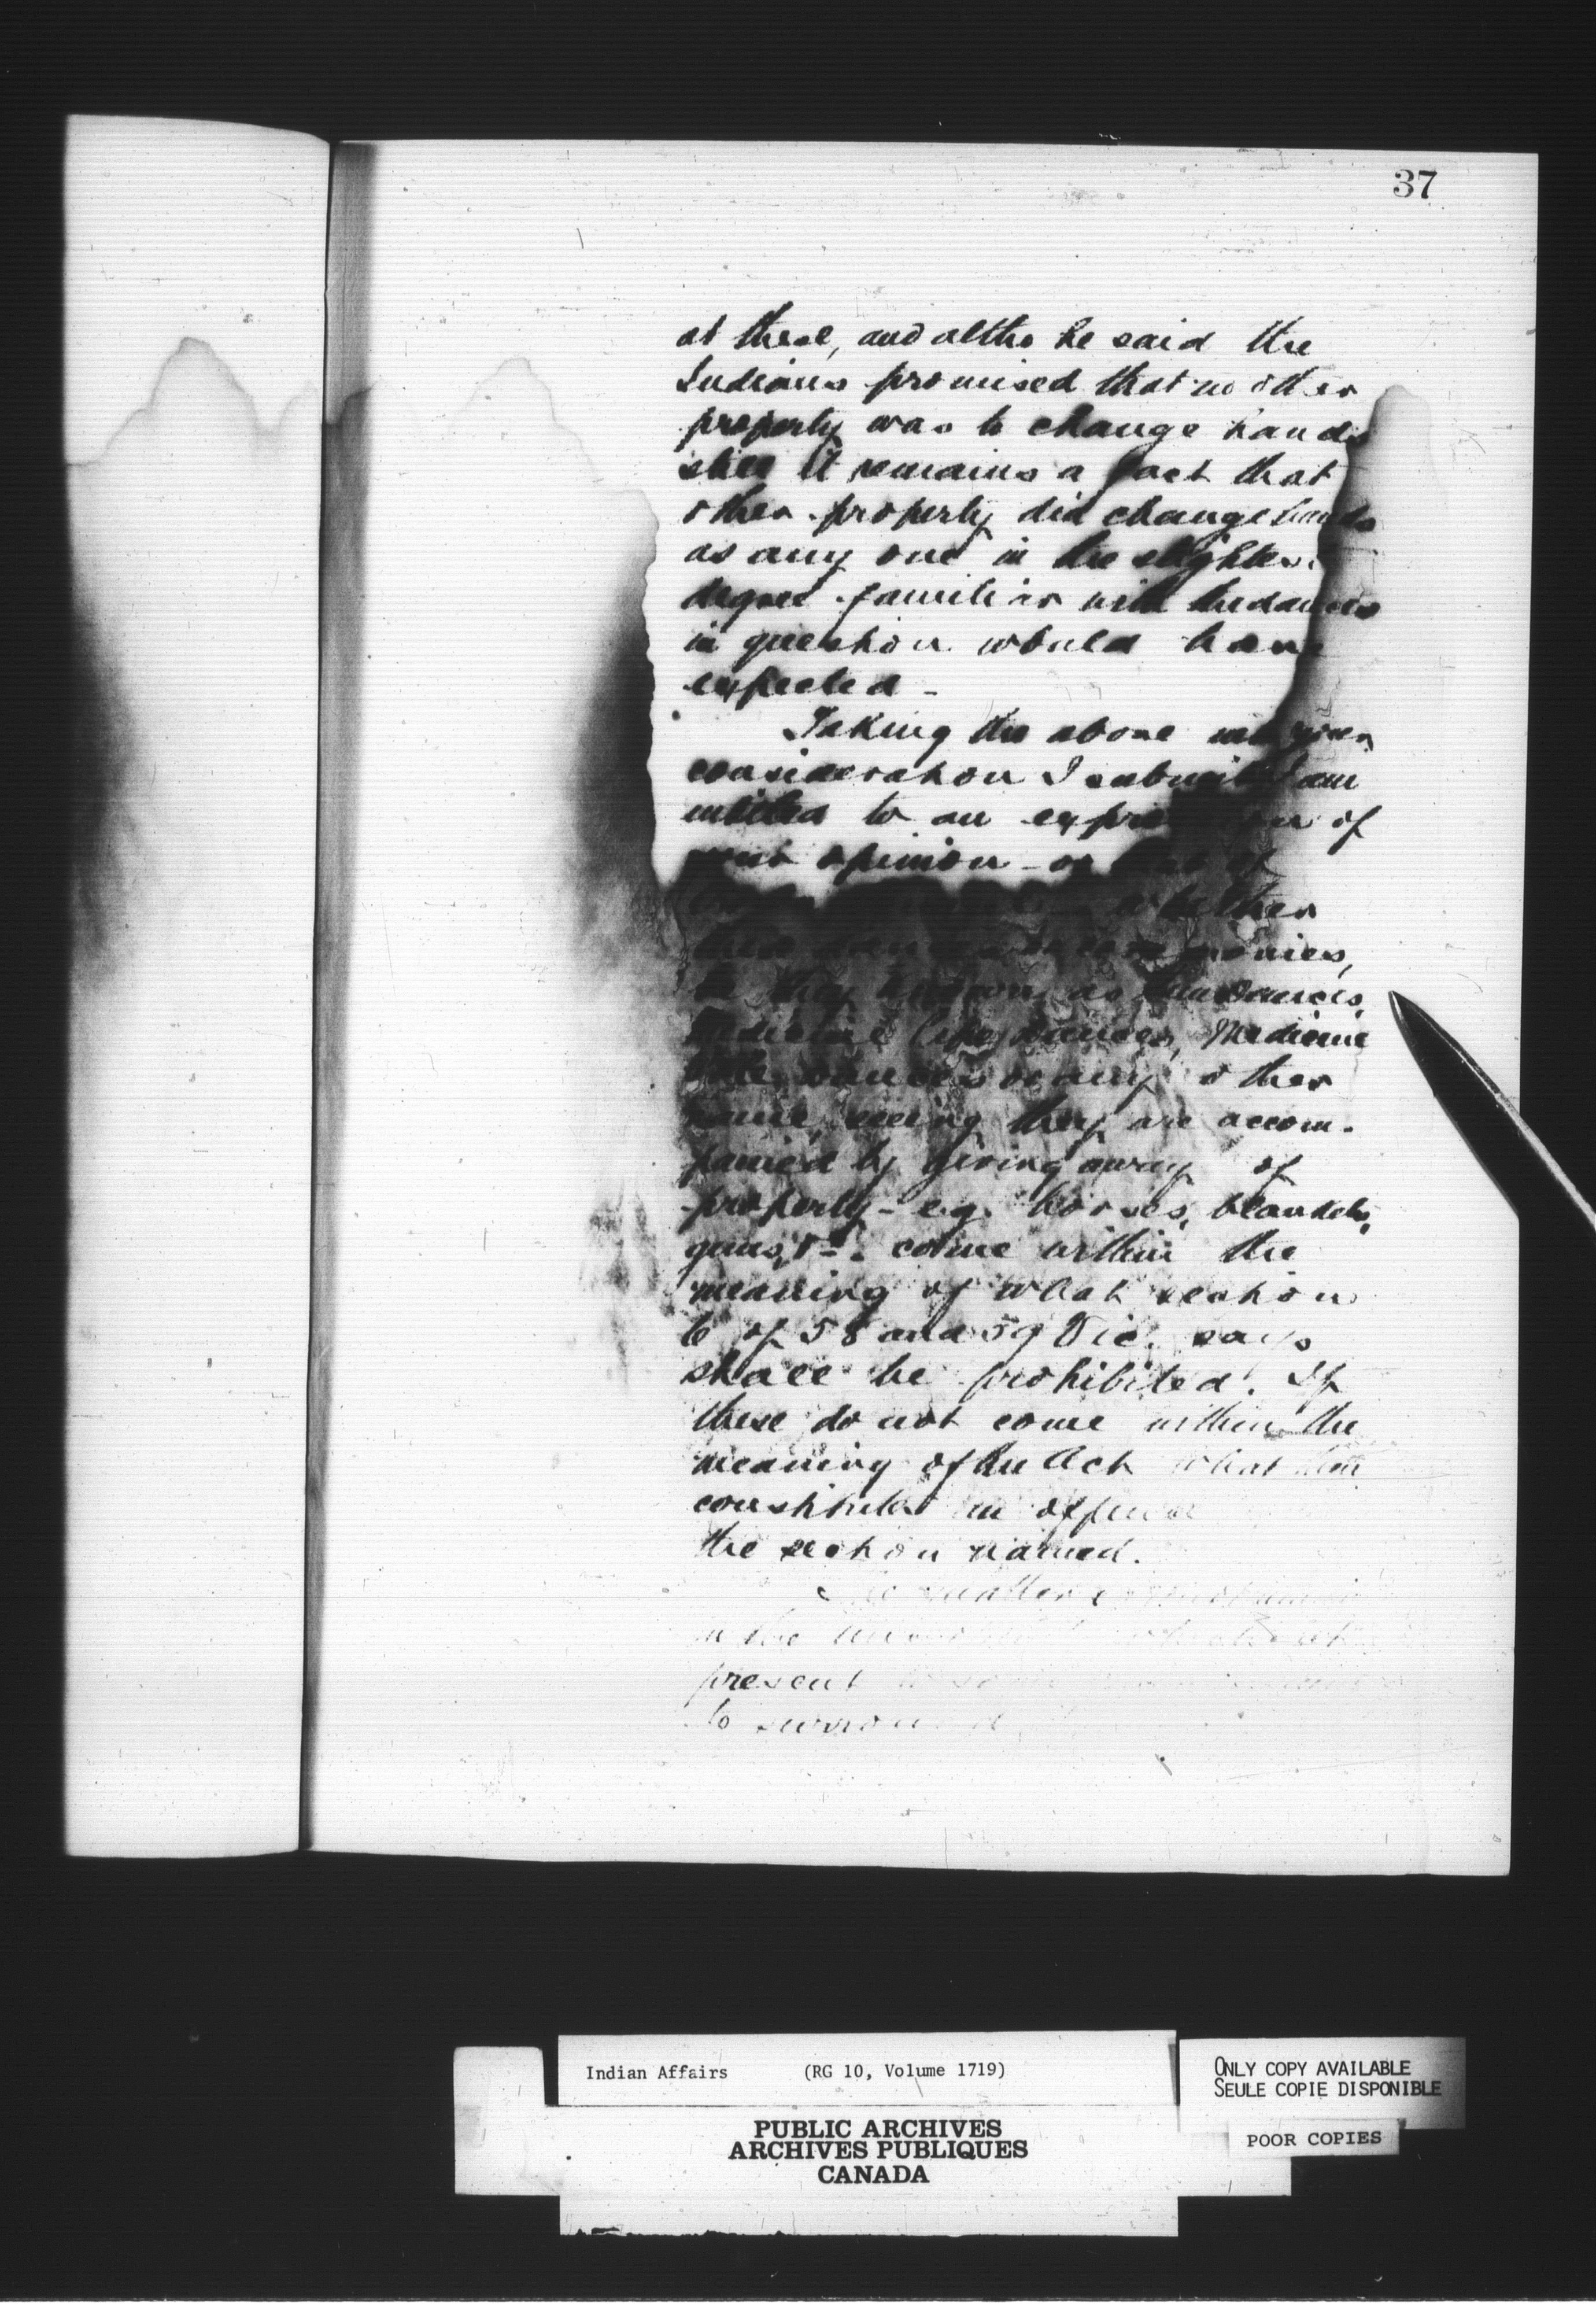 37
at these, and altho he said the
Indians promised that no other
property was to change hands
still it remains a fact that
other property did change hands
as any one in the slightest
degree familiar with the dances
in question would have
expected -
Taking the above into your
consideration I submit I am
entitled to an expression of
your opinion - or that of
whether
these dances or ceremonies,
be they known as Sun Dances,
Medicine Pipe Dances, Medicine
dances or any other
name, seeing they are accom-
panied by giving away of
property - e.g. horses, blankets,
guns, &c. come within the
meaning of what section
6 of 58 and 59 Vic. says
shall be prohibited. If
these do not come within the
meaning of the Act what then
constitutes an offence
the section named.
matter
in the
present
to surround
Indian Affairs (RG 10, Volume 1719)
PUBLIC ARCHIVES
ARCHIVES PUBLIQUES
CANADA
ONLY COPY AVAILABLE
SEULE COPIE DISPONIBLE
POOR COPIES